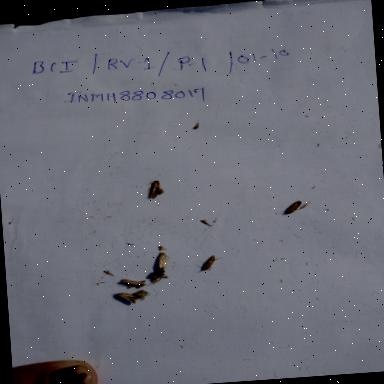 BCI / RV-1 / P.1 / 01-10
INMH8808017